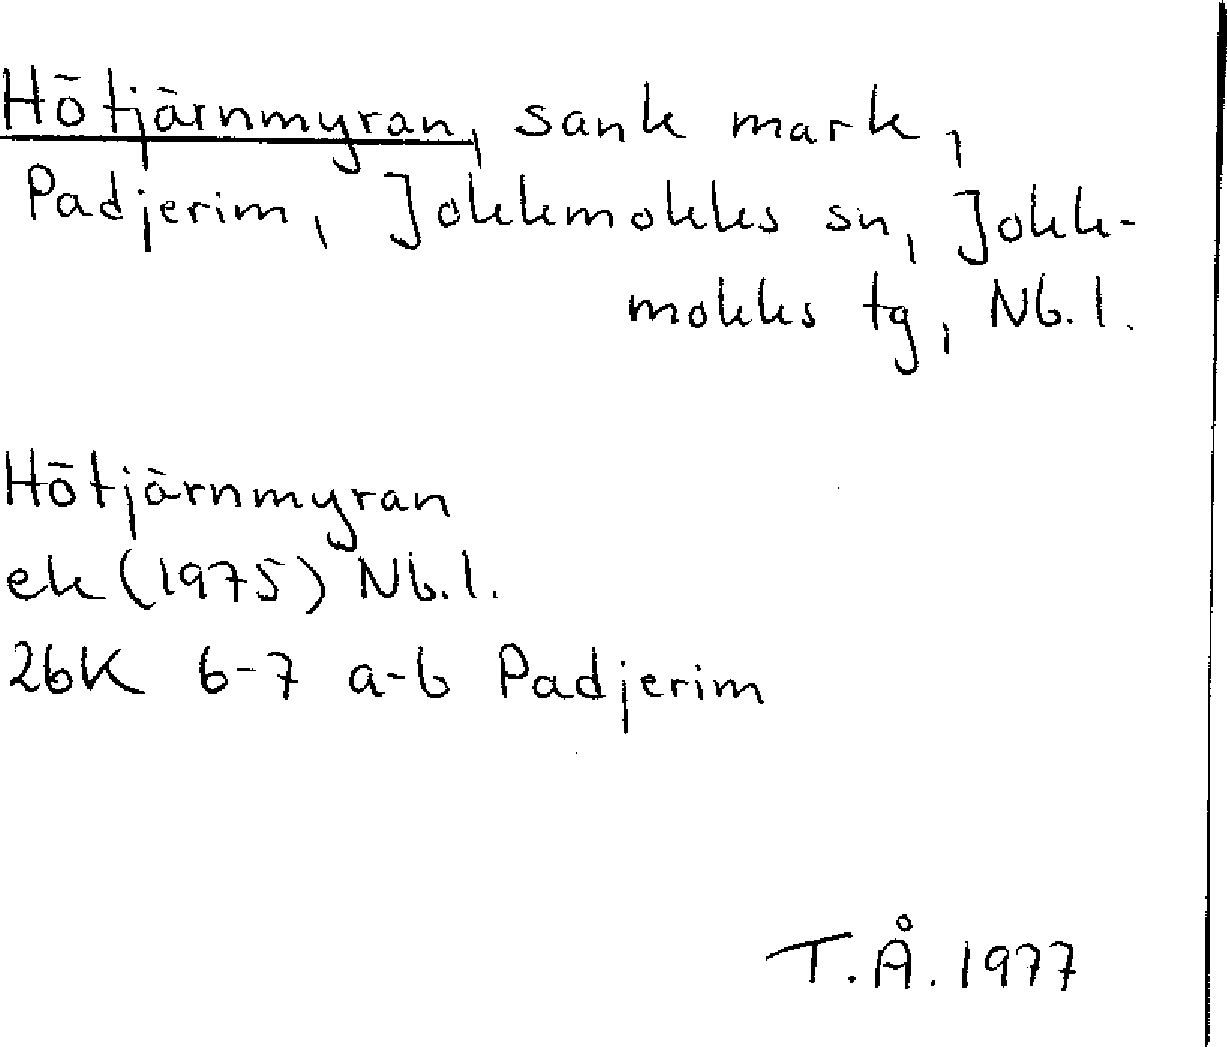 Hötjärnmyran, sank mark,
Padjerim, Jokkmokks sn, Jokk-
mokks tg, Nb.l.
Hötjärnmyran
ek (1975) Nb.l.
26K 6-7 a-b Padjerim
T.Å. 1977